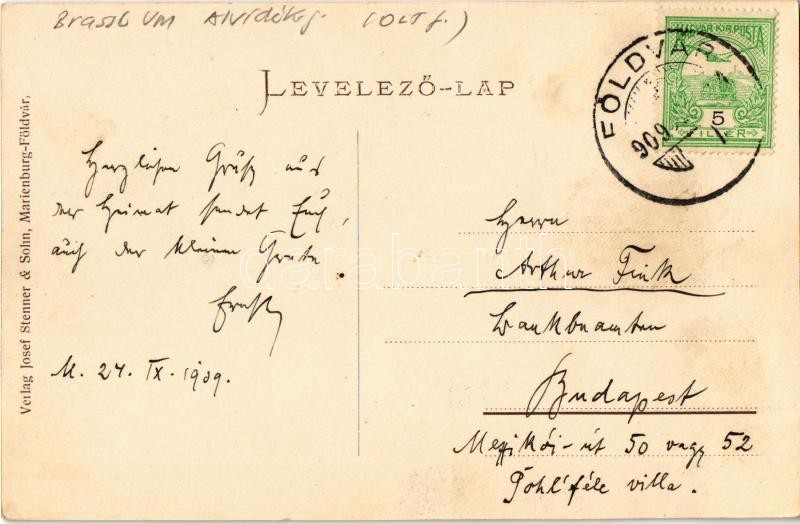 Brassó VM Alvidék (OLT f.)
MAGYAR KIR. POSTA
5
FILLÉR
FÖLDVÁR
909
LEVELEZŐ-LAP
Herzlichen Grüße aus
der Heimat sendet Euch,
auch der kleinen Grete
Ernst
M. 24. IX. 1909.
Herrn
Arthur Fink
Bankbeamten
Budapest
Mexikói-út 50 vagy 52
Pohl féle villa.
Verlag Josef Stenner & Sohn, Marienburg-Földvár,
darabanth